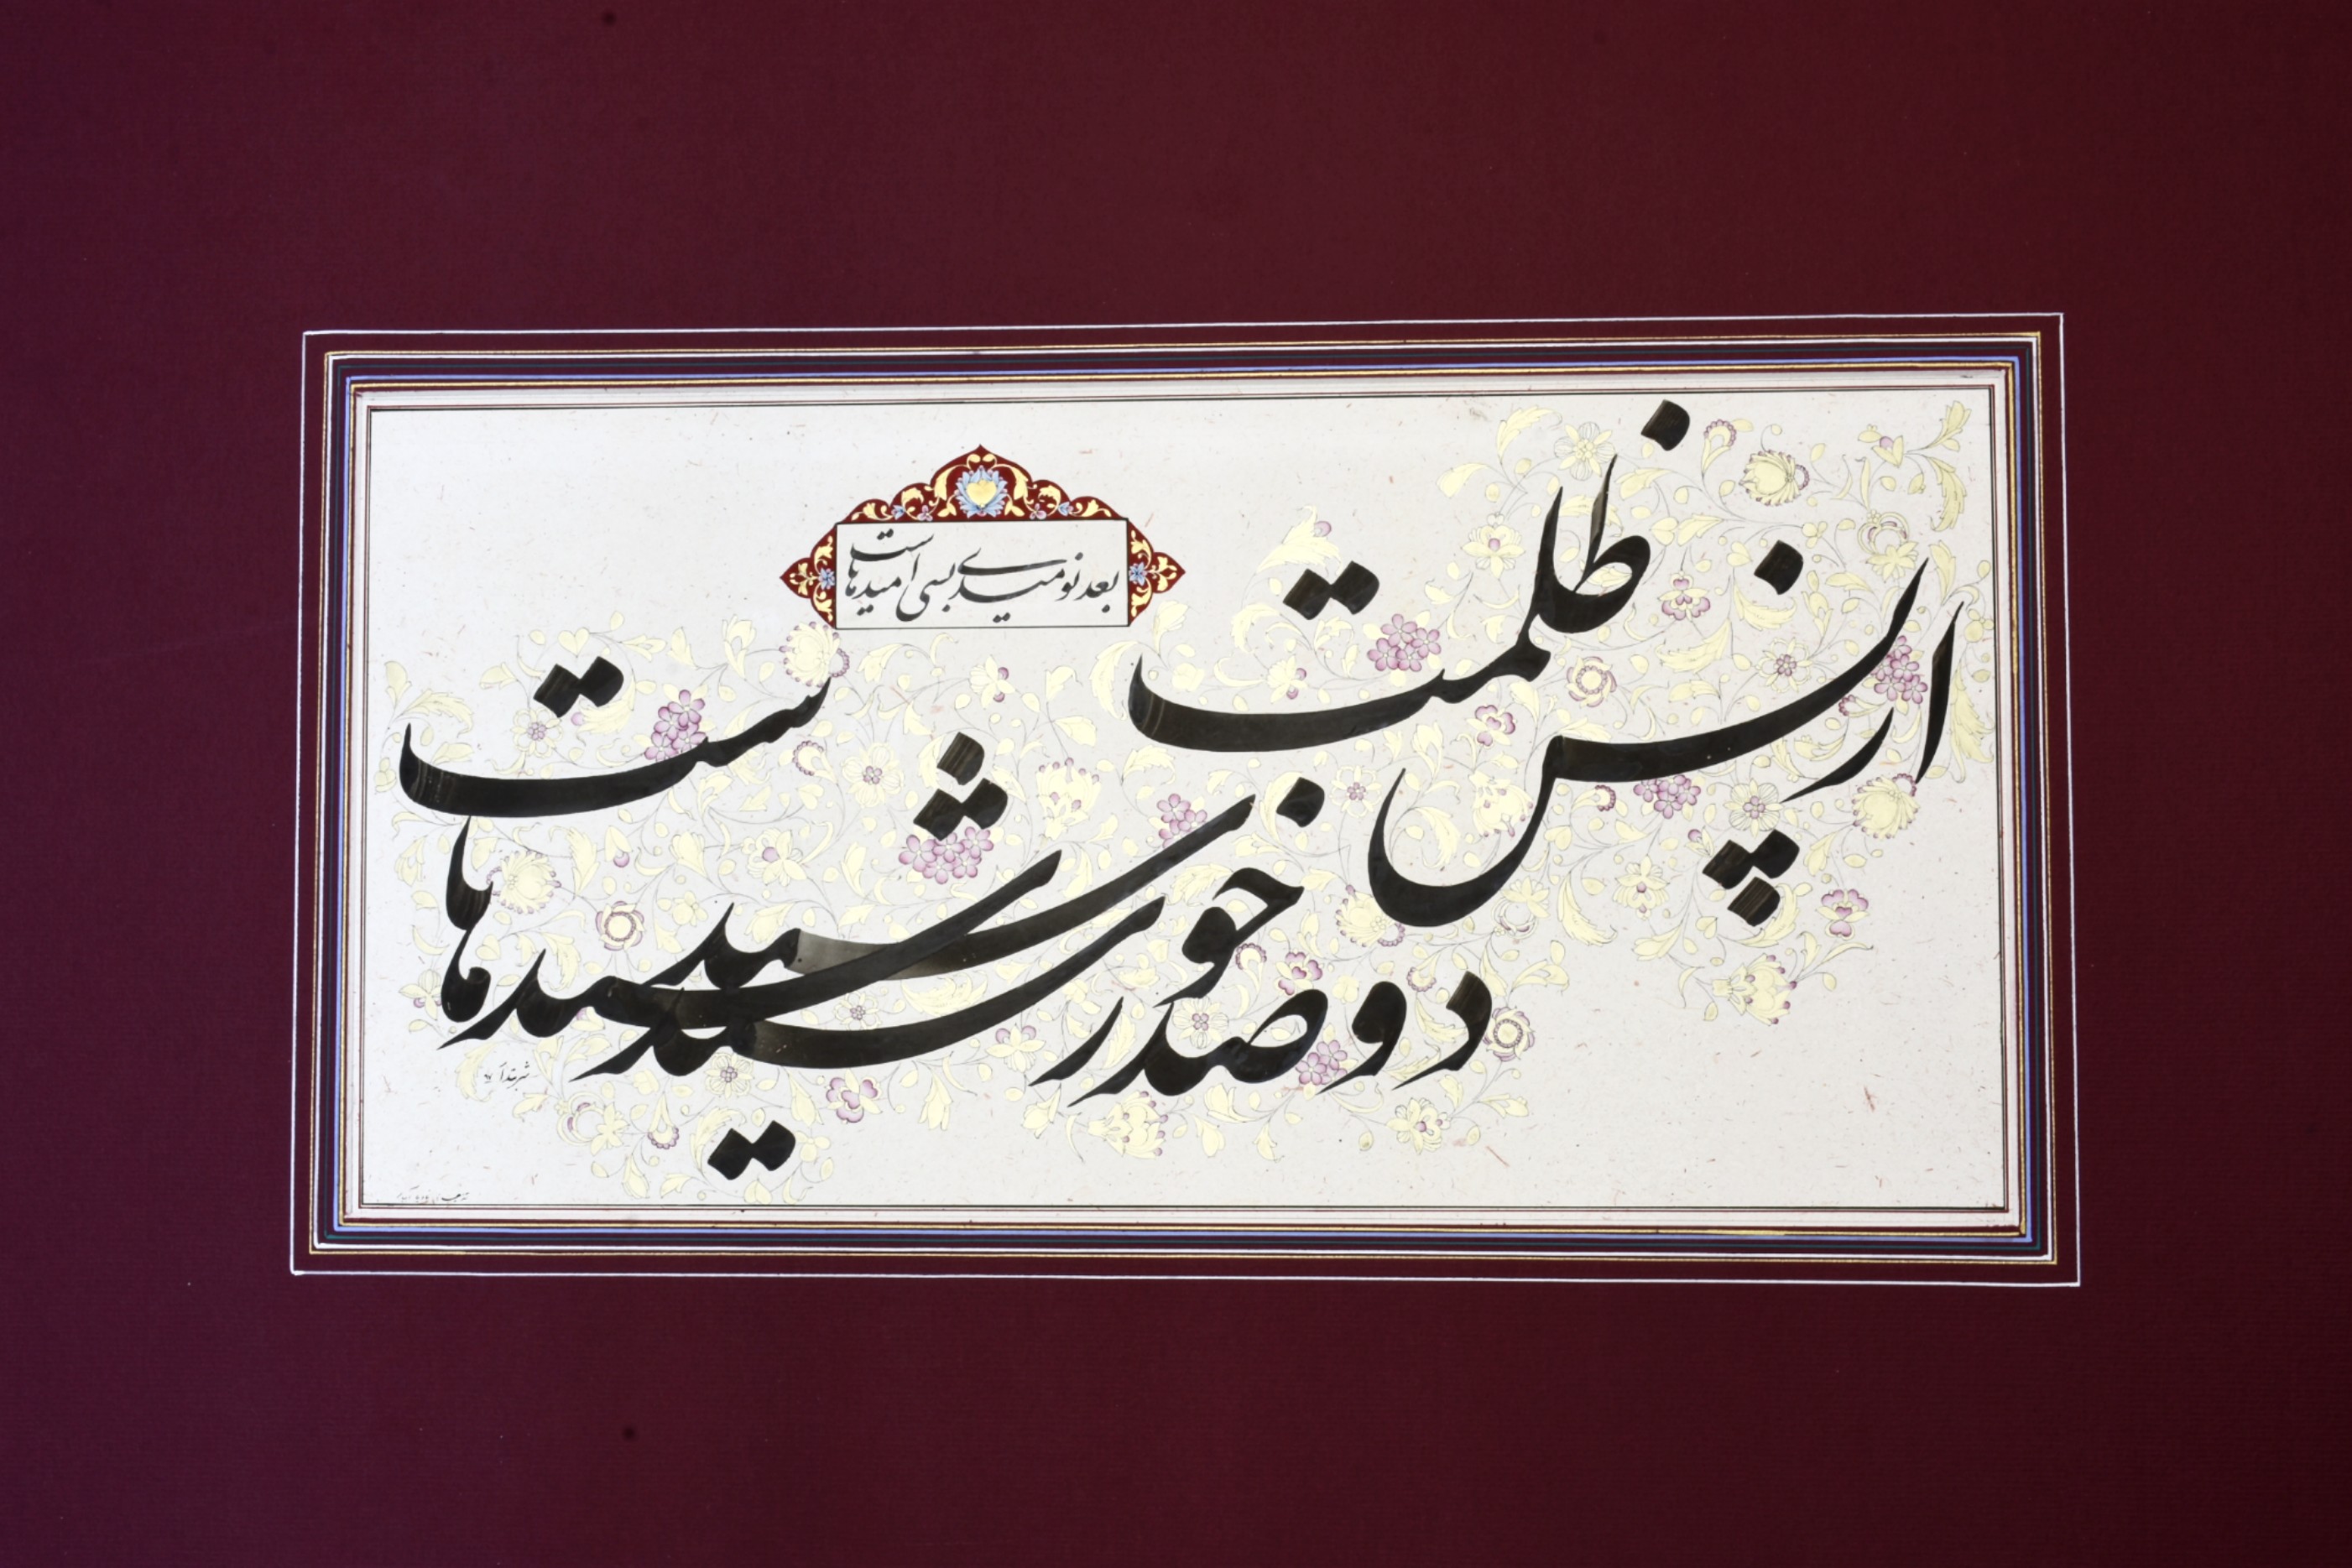 بعد نومیدی بسی امیدهاست
از پس ظلمت
دو صد خورشیدهاست